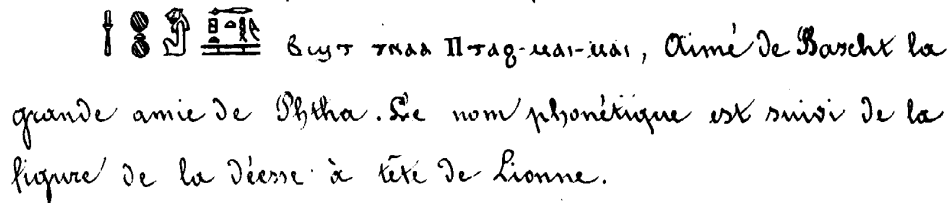 Ⲃϣⲧ ⲧⲛⲁⲁ Ⲡⲧⲁϩ-ⲙⲁⲓ-ⲙⲁⲓ, Aimé de Bascht la
grande amie de Phtha. Le nom phonétique est suivi de la
figure de la déesse à tête de Lionne.